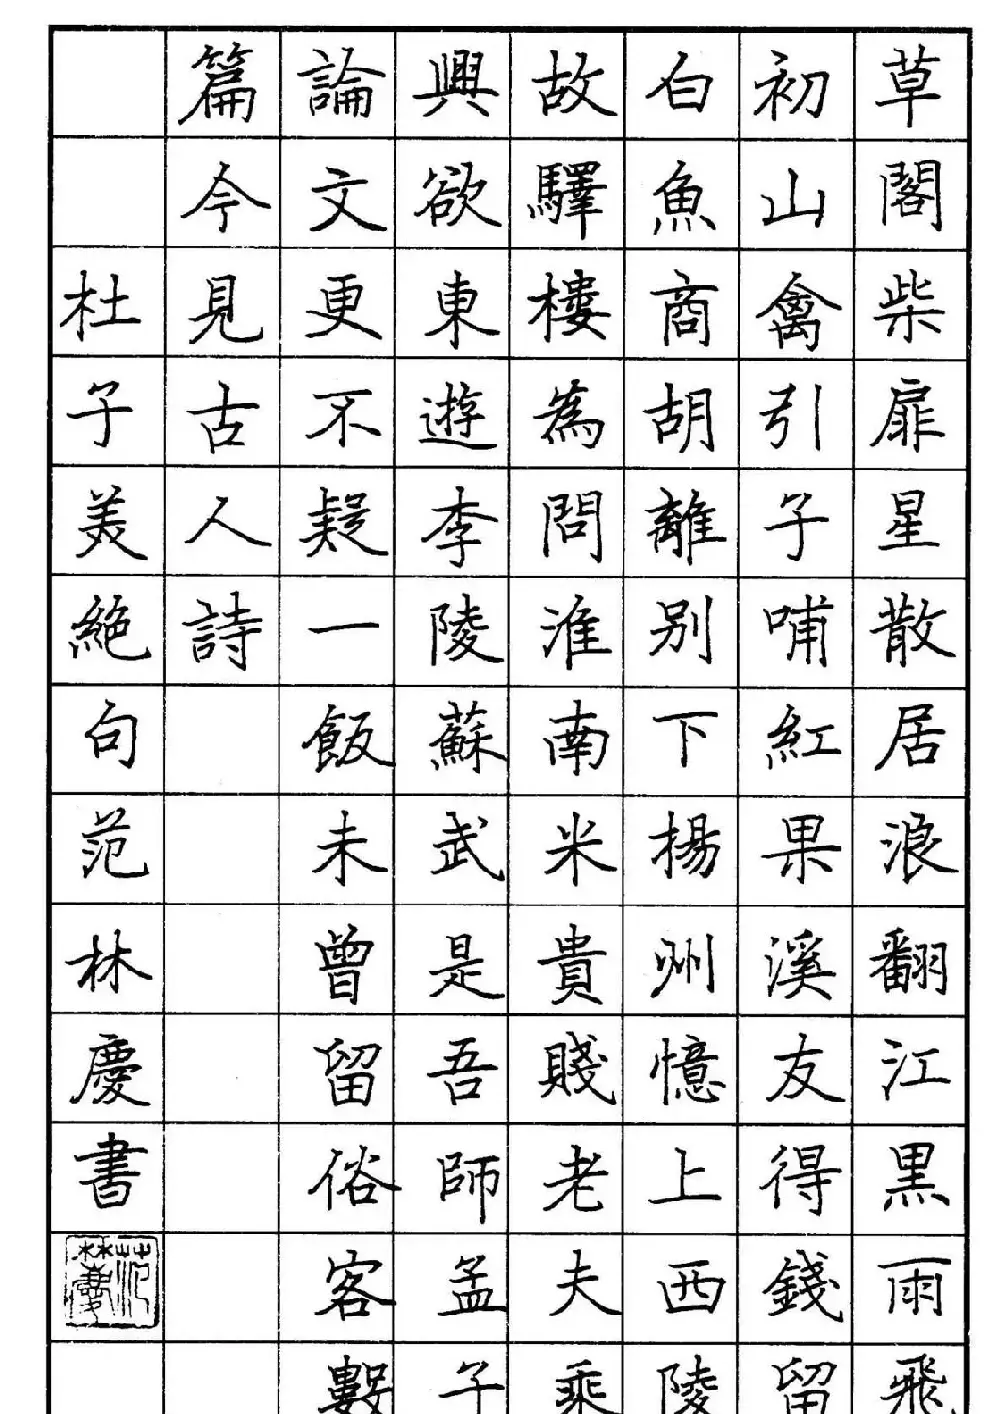 草閣柴扉星散居浪翻江黒雨飛
初山禽引子哺紅果溪友得錢留
白魚商胡離別下揚州憶上西陵
故驛樓為問淮南米貴賤老夫乘
興欲東遊李陵蘇武是吾師孟子
論文更不疑一飯未曾留俗客數
篇今見古人詩
杜子美絕句范林慶書
范林慶